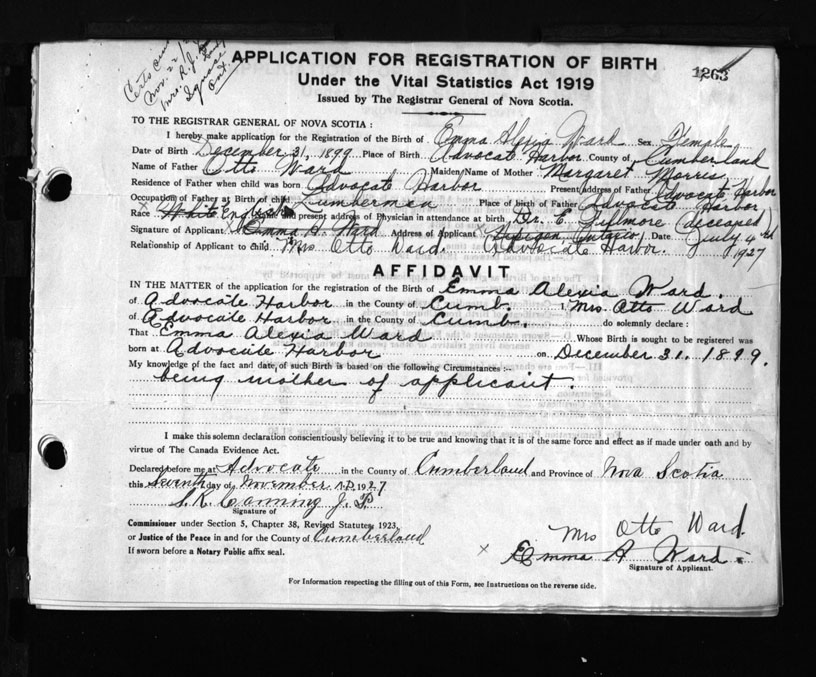 Certs
Nov. 22/27
Mrs. R. J.
Ont.
1263
APPLICATION FOR REGISTRATION OF BIRTH
Under the Vital Statistics Act 1919
Issued by The Registrar General of Nova Scotia.
TO THE REGISTRAR GENERAL OF NOVA SCOTIA :
I hereby make application for the Registration of the Birth of Emma Alexia Ward Sex Female
Date of Birth December 31, 1899 Place of Birth Advocate Harbor County of Cumberland
Name of Father Otto Ward Maiden Name of Mother Margaret Morris
Residence of Father when child was born Advocate Harbor Present address of Father Advocate Harbor
Occupation of Father at Birth of child Lumberman Place of birth of Father Advocate Harbor
x Race White English and present address of Physician in attendance at birth Dr. E. Fillmore (deceased)
Signature of Applicant Emma H. Ward Address of Applicant x Nipigon Ontario Date July 4
Relationship of Applicant to child Mrs Otto Ward. Advocate Harbor. 1927
AFFIDAVIT
IN THE MATTER of the application for the registration of the Birth of Emma Alexia Ward.
of Advocate Harbor in the County of Cumb. I, Mrs Otto Ward
of Advocate Harbor in the County of Cumb. do solemnly declare :
That Emma Alexia Ward Whose Birth is sought to be registered was
born at Advocate Harbor on December 31. 1899.
My knowledge of the fact and date, of such Birth is based on the following Circumstances :-
being mother of applicant.
I make this solemn declaration conscientiously believing it to be true and knowing that it is of the same force and effect as if made under oath and by
virtue of The Canada Evidence Act.
Declared before me at Advocate in the County of Cumberland and Province of Nova Scotia
this Seventh day of November A.D. 1927
S. K. Canning J. P.
Signature of
Commissioner under Section 5, Chapter 38, Revised Statutes, 1923,
or Justice of the Peace in and for the County of Cumberland
If sworn before a Notary Public affix seal.
Mrs Otto Ward.
x Emma A Ward.
Signature of Applicant.
For Information respecting the filling out of this Form, see Instructions on the reverse side.